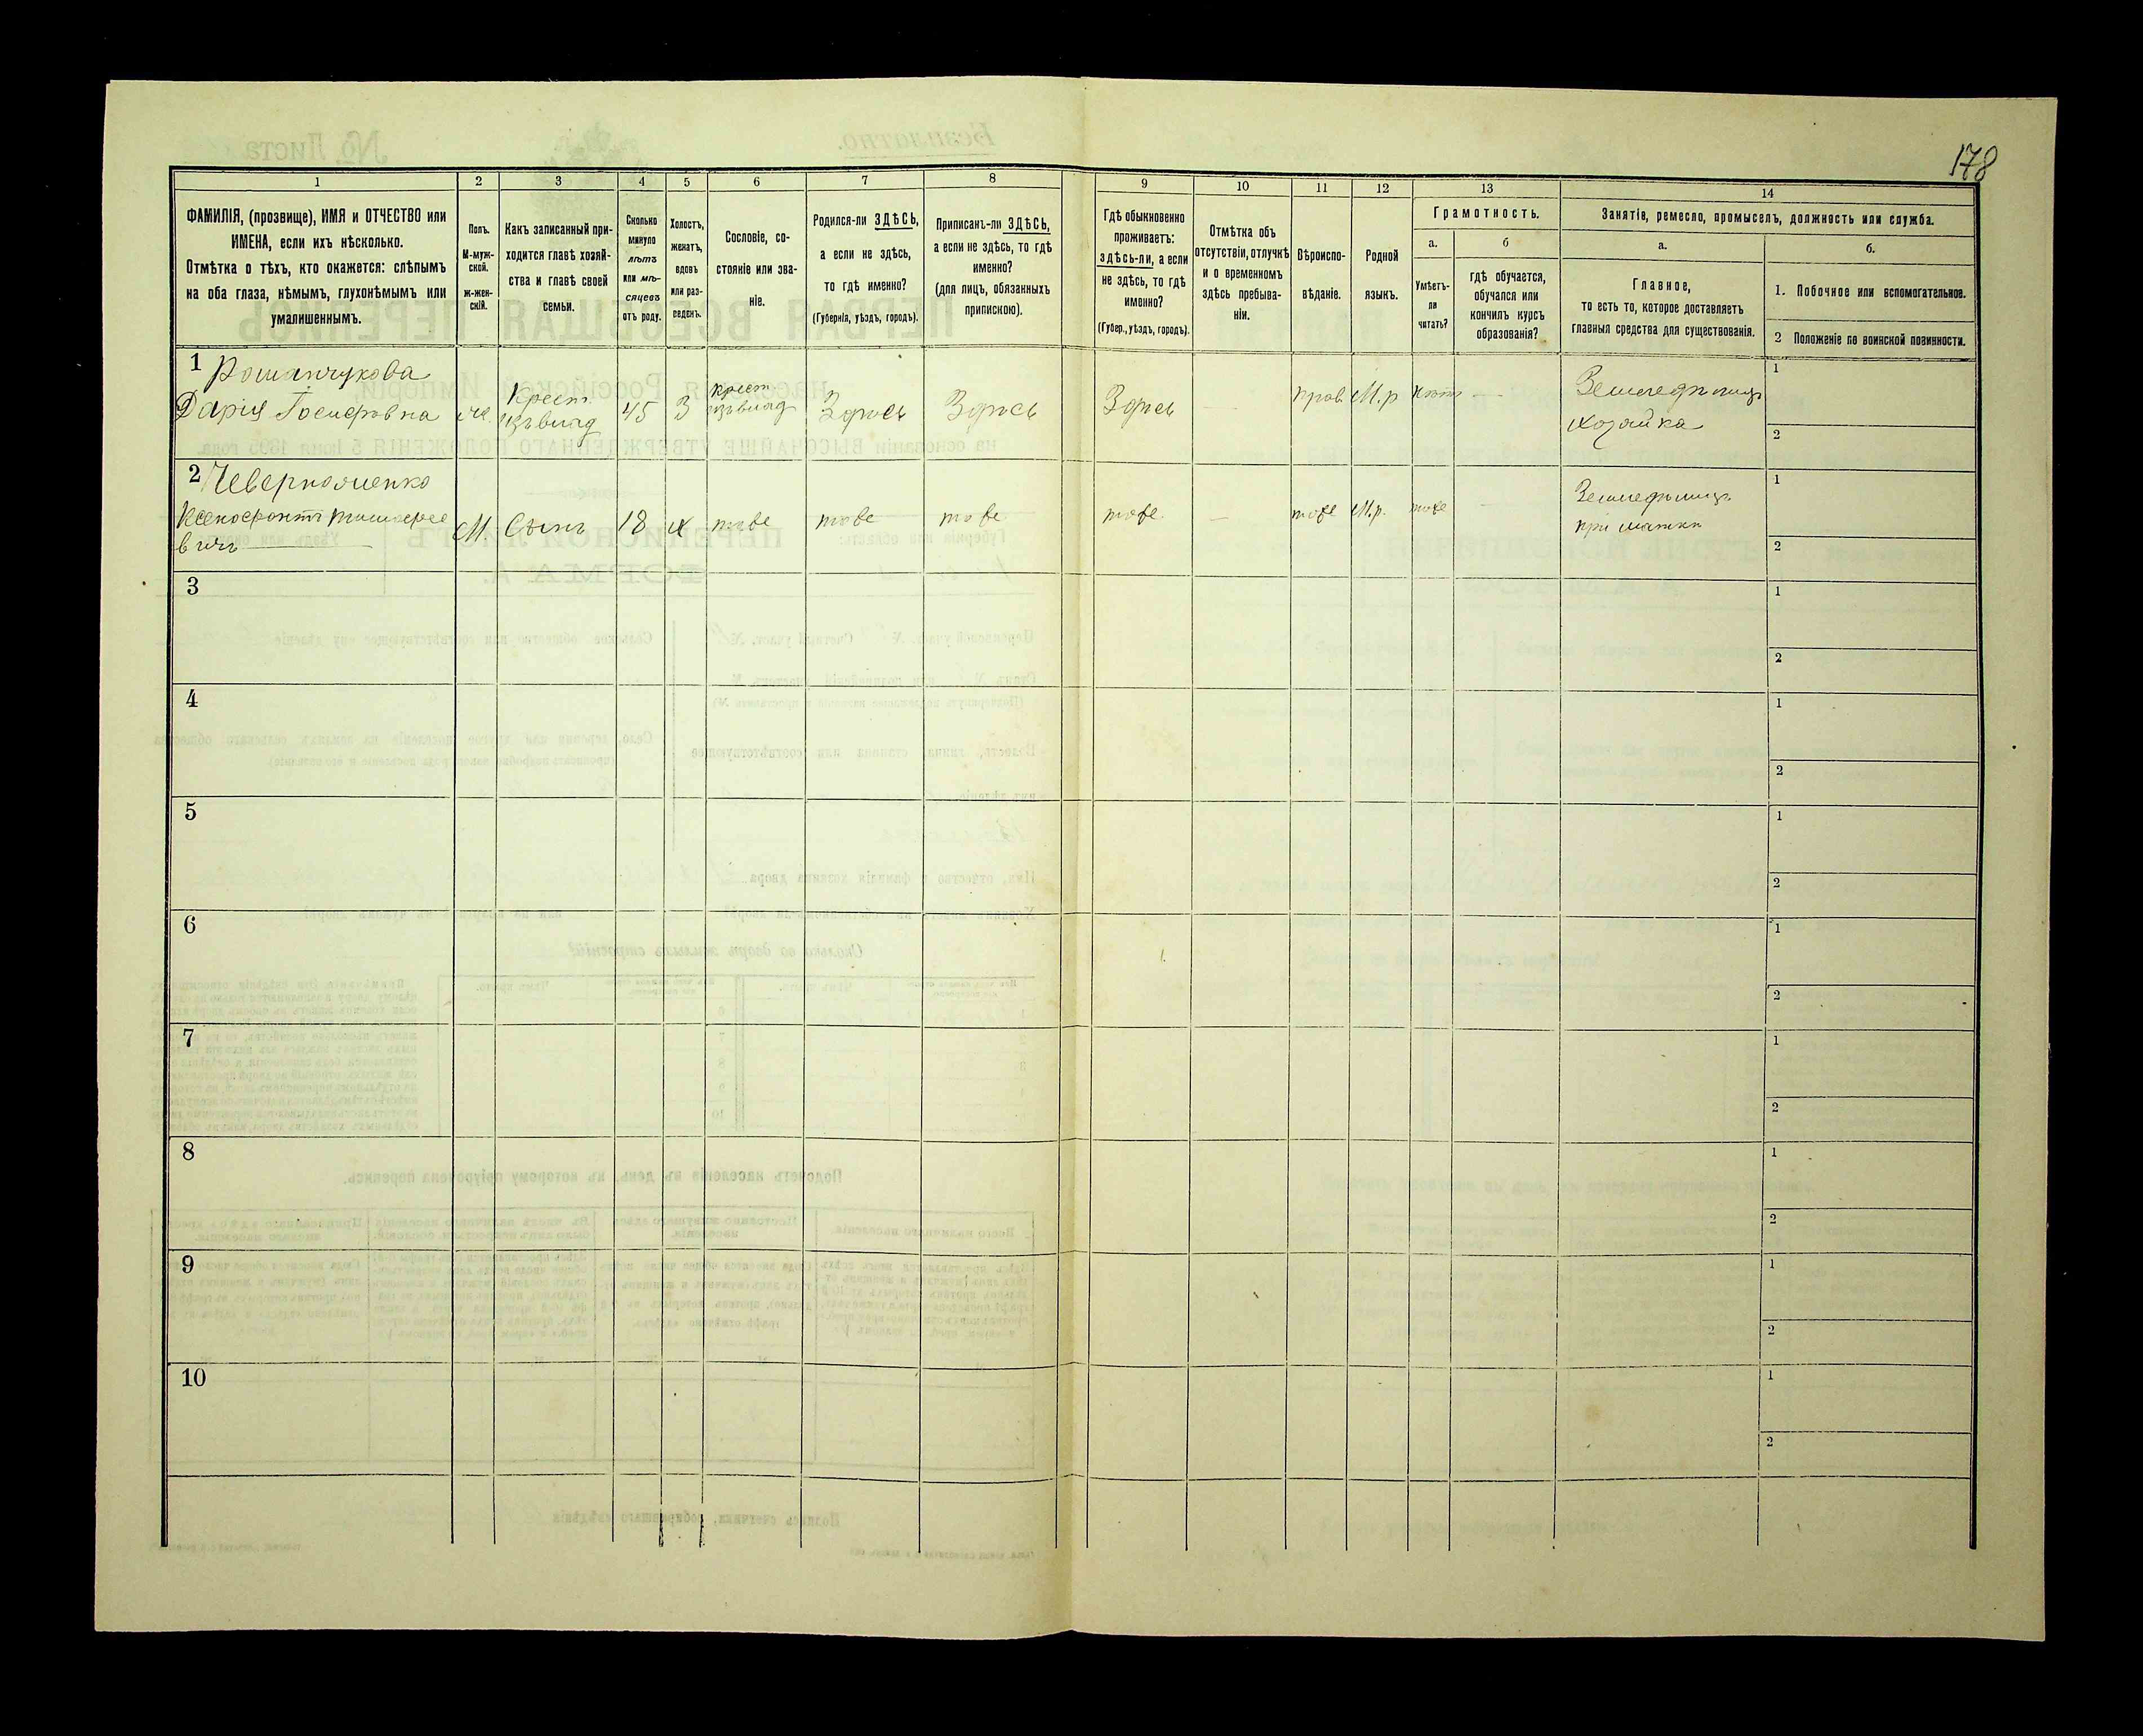 178
1 2 3 4 5 6 7 8 9 10 11 12 13 14
ФАМИЛІЯ, (прозвище), ИМЯ и ОТЧЕСТВО или
ИМЕНА, если ихъ нѣсколько.
Отмѣтка о тѣхъ, кто окажется: слѣпымъ
на оба глаза, нѣмымъ, глухонѣмымъ или
умалишеннымъ.
Полъ.
М-муж-
ской.
ж-жен-
скій.
Какъ записанный при-
ходится главѣ хозяй-
ства и главѣ своей
семьи.
Сколько
минуло
лѣтъ
или мѣ-
сяцевъ
отъ роду.
Холостъ,
женатъ,
вдовъ
или раз-
веденъ.
Сословіе, со-
стояніе или зва-
ніе.
Родился-ли ЗДѢСЬ,
а если не здѣсь,
то гдѣ именно?
(Губернія, уѣздъ, городъ).
Приписанъ-ли ЗДѢСЬ,
а если не здѣсь, то гдѣ
именно?
(для лицъ, обязанныхъ
припискою).
Гдѣ обыкновенно
проживаетъ:
здѣсь-ли, а если
не здѣсь, то гдѣ
именно?
(Губер., уѣздъ, городъ).
Отмѣтка объ
отсутствіи, отлучкѣ
и о временномъ
здѣсь пребыва-
ніи.
Вѣроиспо-
вѣданіе.
Родной
языкъ.
Грамотность.
а.
Умѣетъ-
ли
читать?
б
гдѣ обучается,
обучался или
кончилъ курсъ
образованія?
Занятіе, ремесло, промыселъ, должность или служба.
а.
Главное,
то есть то, которое доставляетъ
главныя средства для существованія.
б.
1. Побочное или вспомогательное.
2 Положеніе по воинской повинности.
1
Дарія Іосифовна
ж.
Крест.
45
В
крест
Здѣсь
Здѣсь
Здѣсь
—
прав.
М.р
нѣтъ
—
Земледѣлица
хозяйка
1
2
2
Ксенофонтъ
вичъ
М.
Сынъ
18
Х
тоже
тоже
тоже
тоже
—
тоже
М.р.
тоже
—
при матки
1
2
3
1
2
4
1
2
5
1
2
6
1
2
7
1
2
8
1
2
9
1
2
10
1
2